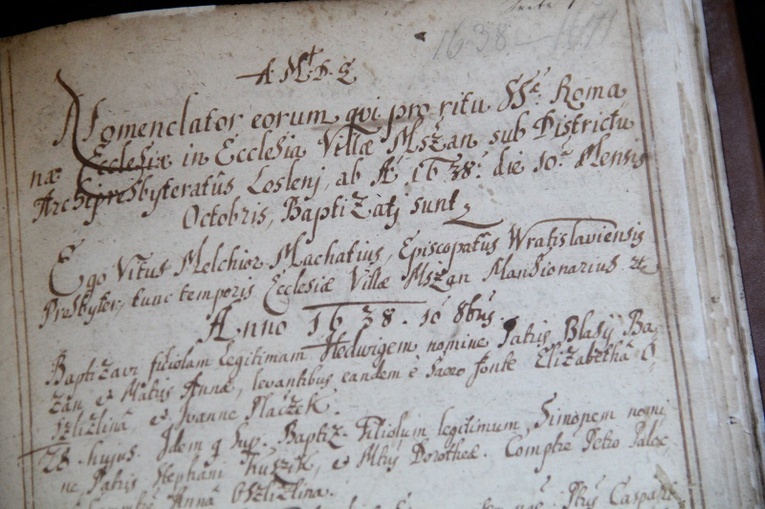 1638
A. Mt. D. G
Nomenclator eorum qvi pro ritu SSæ. Roma
næ Ecclesiæ in Ecclesia Villæ Mszan sub Districtu
Archipresbyteratûs Loslenj, ab Aô 1638. die 10. Mensis
Octobris, Baptizatj sunt,
Ego Vitus Melchior Machatius, Episcopatûs Wratislaviensis
Presbyter, tunc temporis Ecclesiæ Villæ Mszan Mansionarius &c
Anno 1638. 10 8bris
Baptizavi filiolam legitimam Hedwigem nomine Patris Blasij Ba-
zan et Matris Annæ, levantibus eandem è sacro fonte Elizabetha
et Joanne Placzek.
28 hujus. Idem q sup. Baptiz. Filiolum legitimum, Simonem nomi
ne, Patris Stephani et Mris Dorotheæ. Compre Petro
Anna
Caspari